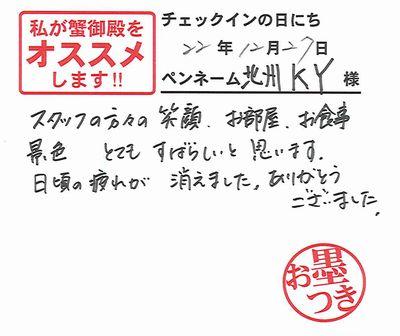 私が蟹御殿を
オススメ
します!!
チェックインの日にち
22年12月27日
ペンネーム 北州KY 様
スタッフの方々の笑顔、お部屋、お食事
景色 とてもすばらしいと思います。
日頃の疲れが 消えました。ありがとう
ございました。
お墨つき